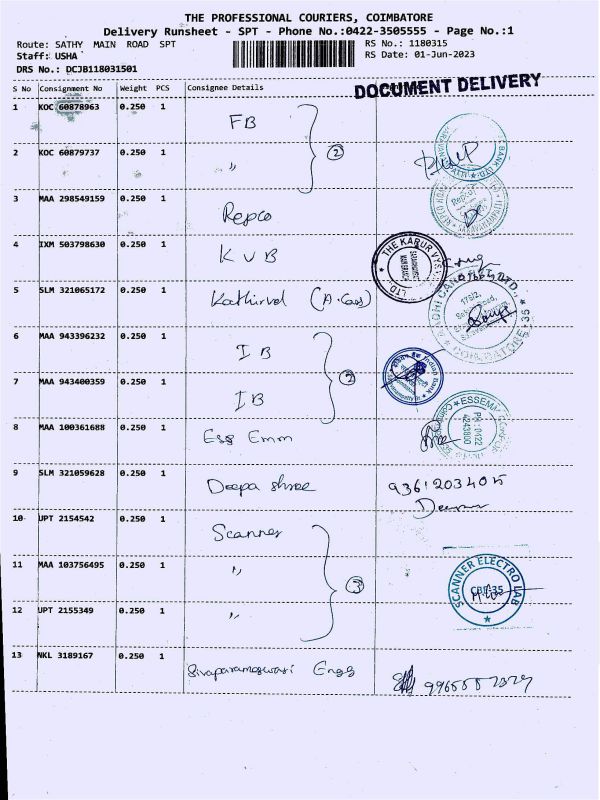 THE PROFESSIONAL COURIERS, COIMBATORE
Delivery Runsheet - SPT - Phone No.:0422-3505555 - Page No.:1
Route: SATHY MAIN ROAD SPT RS No.: 1180315
Staff: USHA RS Date: 01-Jun-2023
DRS No.: DCJB118031501
DOCUMENT DELIVERY
S No Consignment No Weight PCS Consignee Details
1 KOC 60878963 0.250 1 FB
2
2 KOC 60879737 0.250 1 "
BANK LTD.
3 MAA 298549159 0.250 1 Repco
Repco
4 IXM 503798630 0.250 1 KVB
THE KARUR VYS LTD.
5 SLM 321065172 0.250 1 Kathirvel
COIMBATORE-35
6 MAA 943396232 0.250 1 IB
2
Indian Bank
7 MAA 943400359 0.250 1 IB
8 MAA 100361688 0.250 1 Ess Emm
ESSEMM
PH : 0422
4243800
9 SLM 321059628 0.250 1 Deepa Shree 9361203405
10 UPT 2154542 0.250 1 Scanner
11 MAA 103756495 0.250 1 "
3
SCANNER ELECTRO LAB
CBE-35
12 UPT 2155349 0.250 1 "
13 NKL 3189167 0.250 1 Sivaparameswari Engg